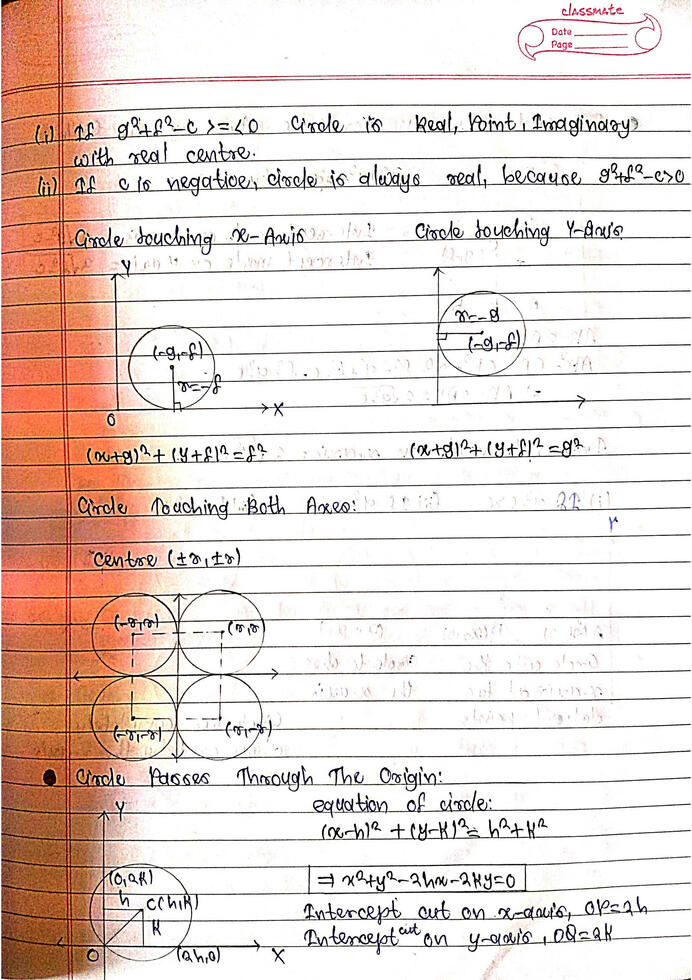 classmate
Date
Page
(i) If g²+f²-c >=<0 Circle is Real, Point, Imaginary
with real centre.
(ii) If c is negative, circle is always real, because g²+f²-c>0
Circle touching x-Axis
Circle touching Y-Axis
Y
(-g,-f)
r=-f
O
X
r=-g
(-g,-f)
(x+g)²+(y+f)²=f²
(x+g)²+(y+f)²=g²
Circle Touching Both Axes:
Centre (±r,±r)
(-r,r)
(r,r)
(-r,-r)
(r,-r)
Circle Passes Through The Origin:
Y
equation of circle:
(x-h)² + (y-k)² = h²+k²
(0,2k)
⇒ x²+y²-2hx-2ky=0
h
C(h,k)
k
Intercept cut on x-axis, OP=2h
Intercept cut on y-axis, OQ=2k
O
(2h,0)
X